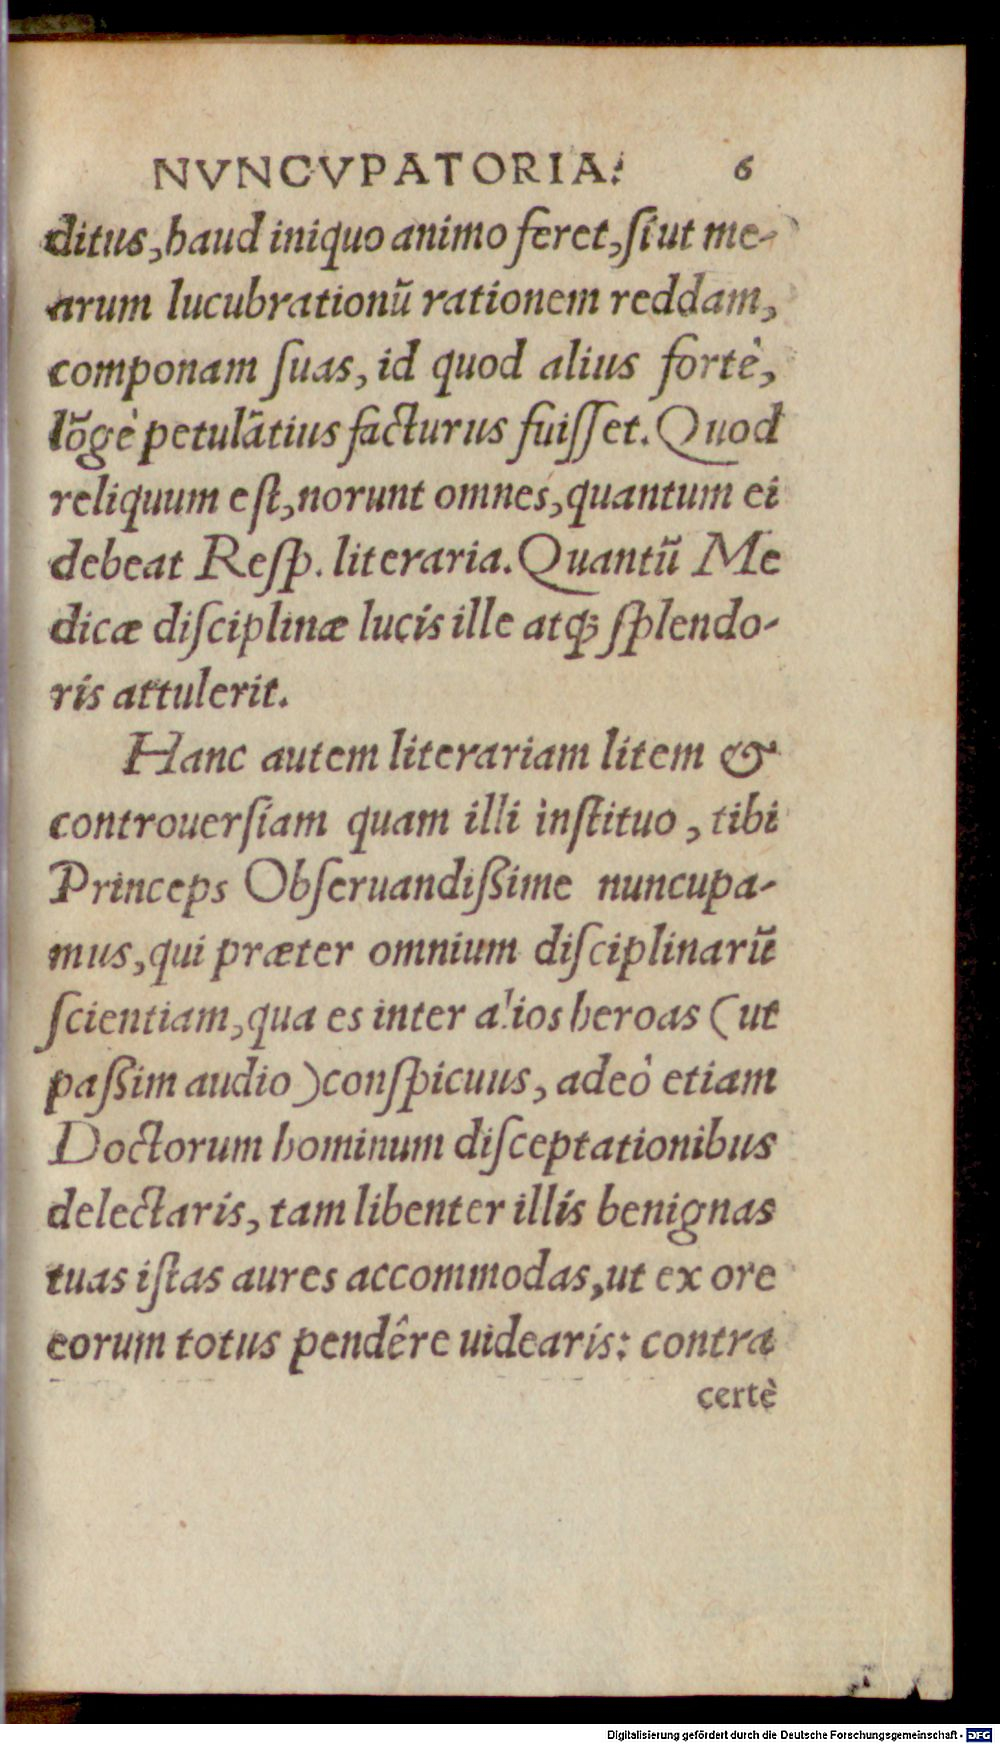 NVNCVPATORIA. 6
ditus, haud iniquo animo feret, si ut me-
arum lucubrationū rationem reddam,
componam suas, id quod alius fortè,
lōgè petulātius facturus fuisset. Quod
reliquum est, norunt omnes, quantum ei
debeat Resp. literaria. Quantū Me
dicæ disciplinæ lucis ille atq; splendo-
ris attulerit.
Hanc autem literariam litem &
controuersiam quam illi instituo, tibi
Princeps Obseruandißime nuncupa-
mus, qui præter omnium disciplinarū
scientiam, qua es inter alios heroas (ut
paßim audio) conspicuus, adeò etiam
Doctorum hominum disceptationibus
delectaris, tam libenter illis benignas
tuas istas aures accommodas, ut ex ore
eorum totus pendêre uidearis: contra
certè
Digitalisierung gefördert durch die Deutsche Forschungsgemeinschaft - DFG